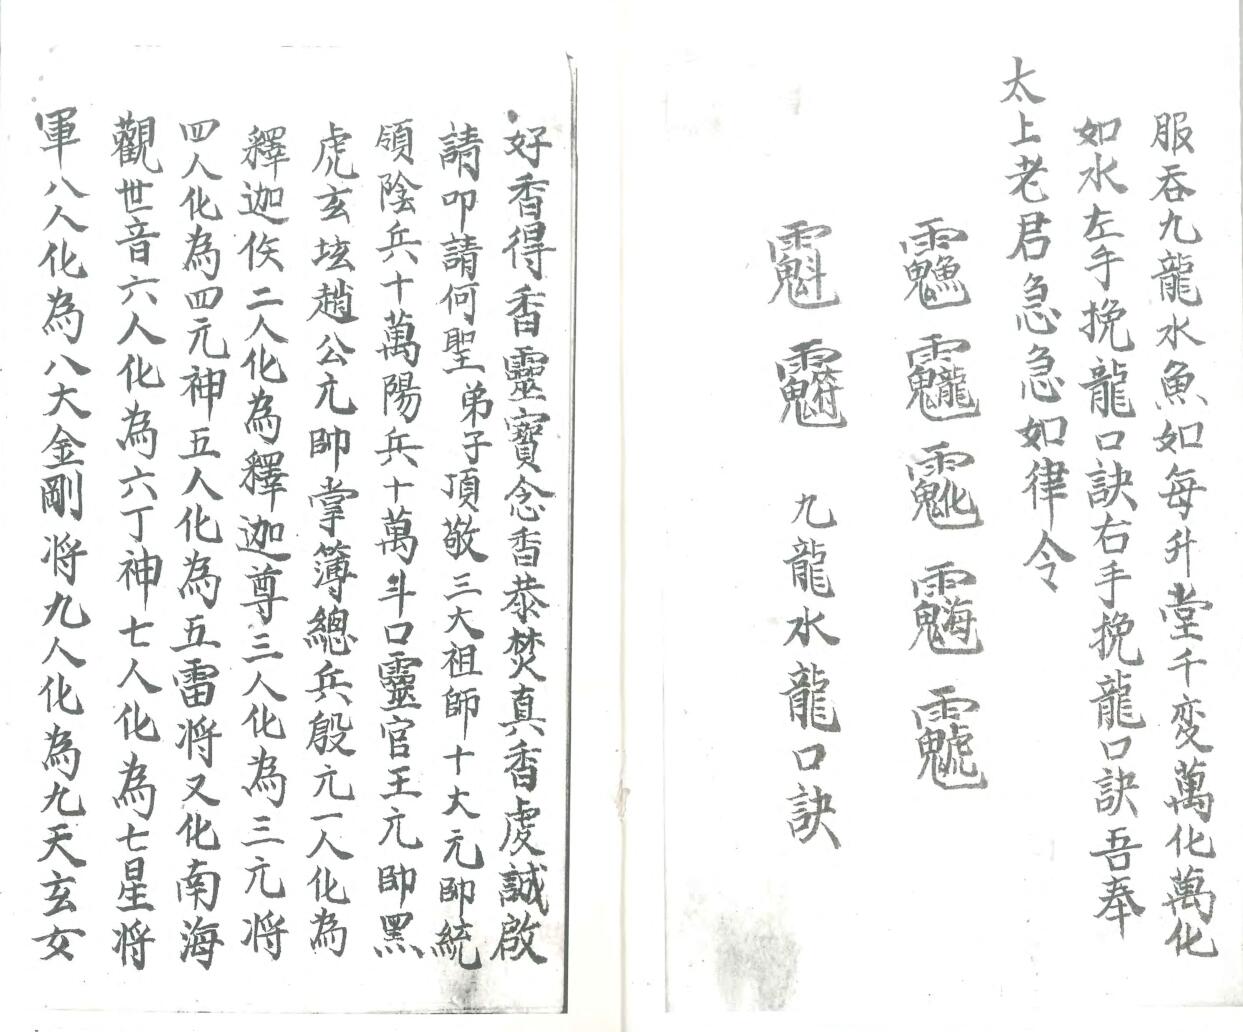 服吞九龍水魚如每升堂千变萬化萬化
如水左手挽龍口訣右手挽龍口訣吾奉
太上老君急急如律令
九龍水龍口訣
好香得香靈寶念香恭焚真香虔誠啟
請叩請何聖弟子頂敬三大祖師十大元帥統
領陰兵十萬陽兵十萬斗口靈官王元帥黑
虎玄坛趙公元帥掌簿總兵殷元一人化為
釋迦佟二人化為釋迦尊三人化為三元将
四人化為四元神五人化為五雷将又化南海
觀世音六人化為六丁神七人化為七星将
軍八人化為八大金剛将九人化為九天玄女